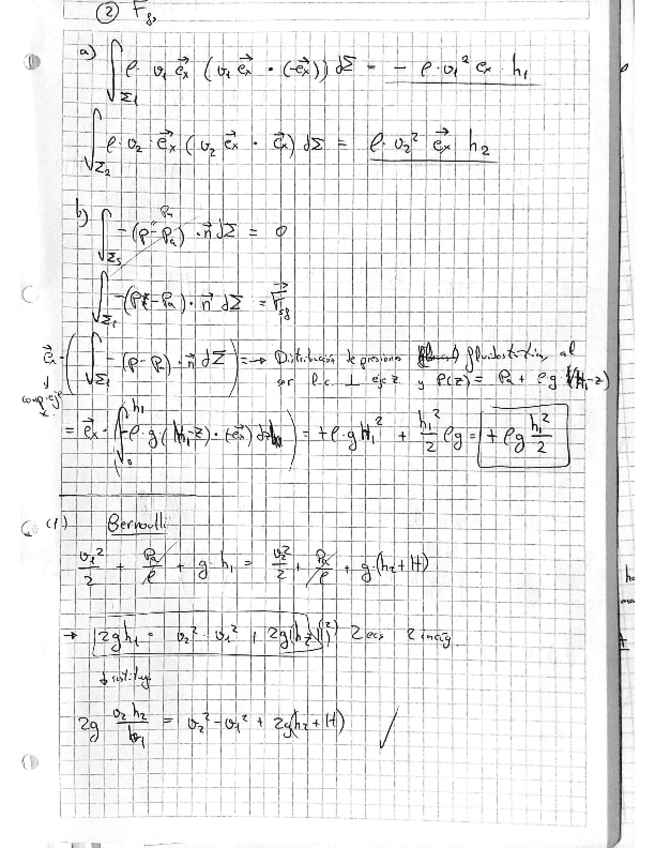 ② F₈,
a) ∫_Σ₁ ρ · v₁ e⃗ₓ (v₁ e⃗ₓ · (-e⃗ₓ)) dΣ = - ρ · v₁² eₓ · h₁
∫_Σ₂ ρ · v₂ · e⃗ₓ (v₂ e⃗ₓ · e⃗ₓ) dΣ = ρ · v₂² e⃗ₓ h₂
b) ∫ -(p - pₐ) · n⃗ dΣ = 0
∫ -(p - pₐ) · n⃗ dΣ =
e⃗ₓ · (∫_Σ₁ -(p - pₐ) · n⃗ dΣ) = → Distribución de presiones fluidostática al
ser l.c. ⊥ eje z y p(z) = pₐ + ρg (h₁-z)
comp. eje x
= e⃗ₓ · (∫₀^h₁ -ρ · g · (h₁-z) · (-e⃗ₓ) dz) = +ρ · g H₁² + h₁²/2 ρg = + ρg h₁²/2
c1.) Bernoulli
v₁²/2 + pₐ/ρ + g · h₁ = v₂²/2 + pₐ/ρ + g · (h₂ + H)
→ 2gh₁ = v₂² - v₁² + 2g(h₂ 2 ecs 2 incóg.
↓ sustituy
2g v₂ h₂/v₁ = v₂² - v₁² + 2g(h₂ + H) ✓